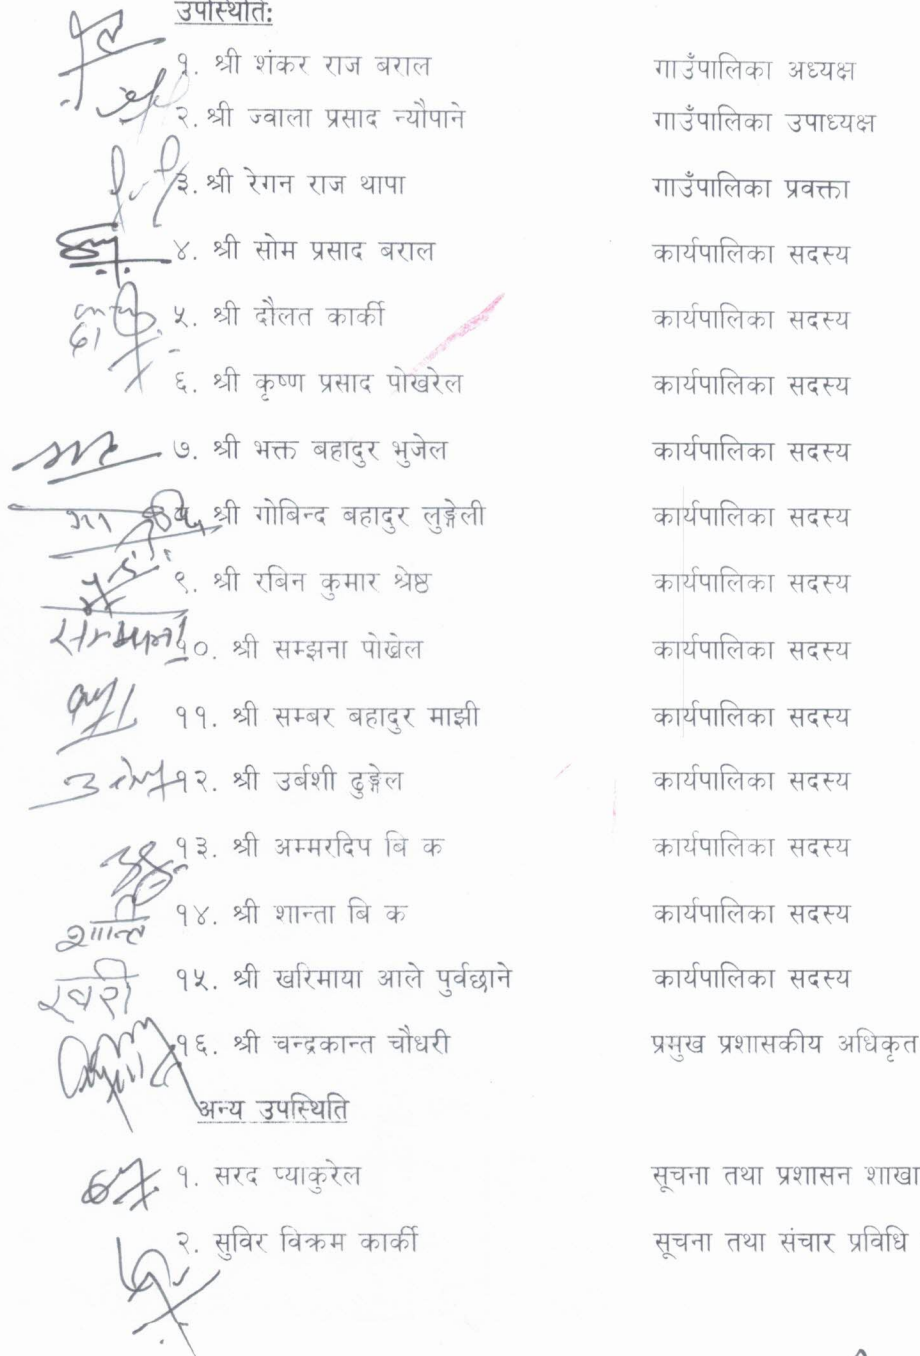 उपस्थितिः
१. श्री शंकर राज बराल गाउँपालिका अध्यक्ष
२. श्री ज्वाला प्रसाद न्यौपाने गाउँपालिका उपाध्यक्ष
३. श्री रेगन राज थापा गाउँपालिका प्रवक्ता
४. श्री सोम प्रसाद बराल कार्यपालिका सदस्य
५. श्री दौलत कार्की कार्यपालिका सदस्य
६. श्री कृष्ण प्रसाद पोखरेल कार्यपालिका सदस्य
७. श्री भक्त बहादुर भुजेल कार्यपालिका सदस्य
श्री गोबिन्द बहादुर लुङ्गेली कार्यपालिका सदस्य
९. श्री रबिन कुमार श्रेष्ठ कार्यपालिका सदस्य
सम्झना १०. श्री सम्झना पोख्रेल कार्यपालिका सदस्य
११. श्री सम्बर बहादुर माझी कार्यपालिका सदस्य
१२. श्री उर्बशी ढुङ्गेल कार्यपालिका सदस्य
१३. श्री अम्मरदिप बि क कार्यपालिका सदस्य
शान्ति १४. श्री शान्ता बि क कार्यपालिका सदस्य
खरी १५. श्री खरिमाया आले पुर्वछाने कार्यपालिका सदस्य
१६. श्री चन्द्रकान्त चौधरी प्रमुख प्रशासकीय अधिकृत
अन्य उपस्थिति
१. सरद प्याकुरेल सूचना तथा प्रशासन शाखा
२. सुविर विक्रम कार्की सूचना तथा संचार प्रविधि